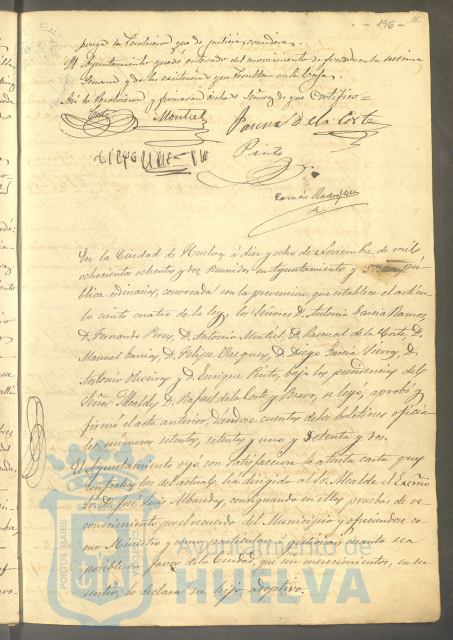 - 196 -
ponga la resolucion que de justicia considere.
El Ayuntamiento quedó enterado del movimiento de fondos en la última
semana y de las existencias que resultan en la Caja.
Asi lo resolvieron y firmaron dichos Señores de que Certifico =
Corte Montiel Pascual de la Corte
Pinto
Tomás Rodriguez
En la Ciudad de Huelva á diez y ocho de Noviembre de mil
ochocientos ochenta y dos, reunidos en Ayuntamiento y sesion pú-
blica ordinaria, convocada con la prevencion que establece el articu-
lo ciento cuatro de la ley, los Señores D. Antonio Garcia Ramos,
D. Fernando Perez, D. Antonio Montiel, D. Pascual de la Corte, D.
Manuel Garcia, D. Felipe Vazquez, D. Diego Garcia, D.
Antonio Oliveira y D. Enrique Pinto, bajo la presidencia del
Señor Alcalde, D. Rafael de la Corte y Bravo, se leyó, aprobó y
firmó el acta anterior, dandose cuenta de los boletines oficia-
les numeros setenta, setenta y uno y setenta y dos.
El Ayuntamiento oyó con satisfaccion la atenta carta que
con fecha del actual, ha dirigido al Sr. Alcalde el Excmo
Sr. D. José Luis Albareda, consignando en ella pruebas de re-
conocimiento por el recuerdo del Municipio y ofreciendo co-
mo Ministro y como particular á gestionar cuanto sea
posible en favor de la Ciudad, que sin merecimientos, en su
sentir, lo declara su hijo adoptivo.
PORTUS MARIS
Ayuntamiento de
HUELVA